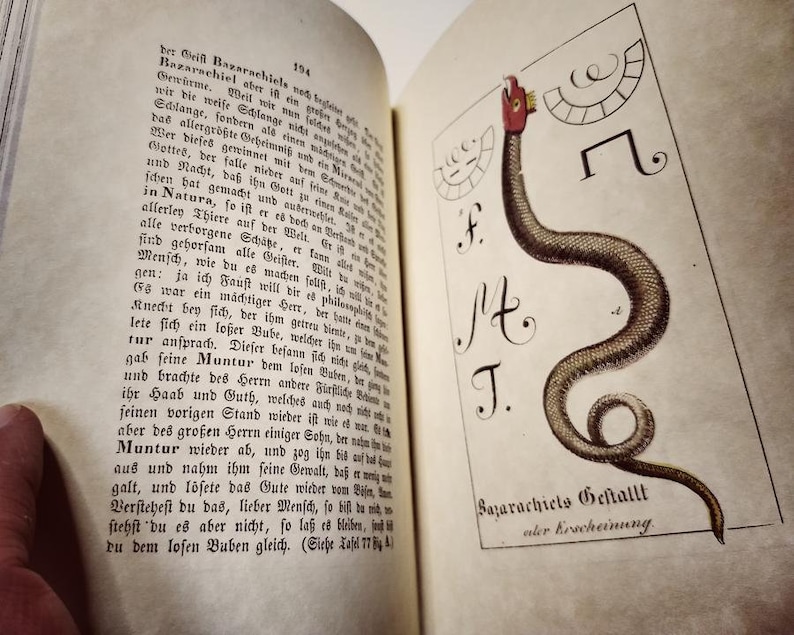 194
der Geist Bazarachiels noch begleitet
Bazarachiel aber ist ein großer Herzog
Gewürme. Weil wir nun solches
wir die weise Schlange nicht anzusehen als
Schlange, sondern als einen mächtigen
das allergrößte Geheimniß und ein
Wer dieses gewinnet mit dem Schwerdte des
Gottes, der falle nieder auf seine Knie und
und Nacht, daß ihn Gott zu einen Kaiser aller
schen hat gemacht und auserwehlet. Ist er
in Natura, so ist er es doch an Verstand und
allerley Thiere auf der Welt. Er ist ein Herr
alle verborgene Schätze, er kann alles
sind gehorsam alle Geister. Wilt du wissen, lieber
Mensch, wie du es machen sollst, ich will dir es
gen: ja ich Faust will dir es philosophisch
Es war ein mächtiger Herr, der hatte einen
Knecht bey sich, der ihm getreu diente, zu dem
lete sich ein loßer Bube, welcher ihn um seine Mun-
tur ansprach. Dieser besann sich nicht gleich, sondern
gab seine Muntur dem losen Buben, der gieng
und brachte des Herrn andere Fürstliche Bediente um
ihr Haab und Guth, welches auch noch nicht in
seinen vorigen Stand wieder ist wie es war. Es
aber des großen Herrn einiger Sohn, der nahm ihm
Muntur wieder ab, und zog ihn bis auf das Haupt
aus und nahm ihm seine Gewalt, daß er wenig mehr
galt, und lösete das Gute wieder vom Bösen, Amen.
Verstehest du das, lieber Mensch, so bist du reich, ver-
stehst du es aber nicht, so laß es bleiben, sonst bist
du dem losen Buben gleich. (Siehe Tafel 77 Fig. A)
f.
M
T.
A
Bazarachiels Gestallt
oder Erscheinung.